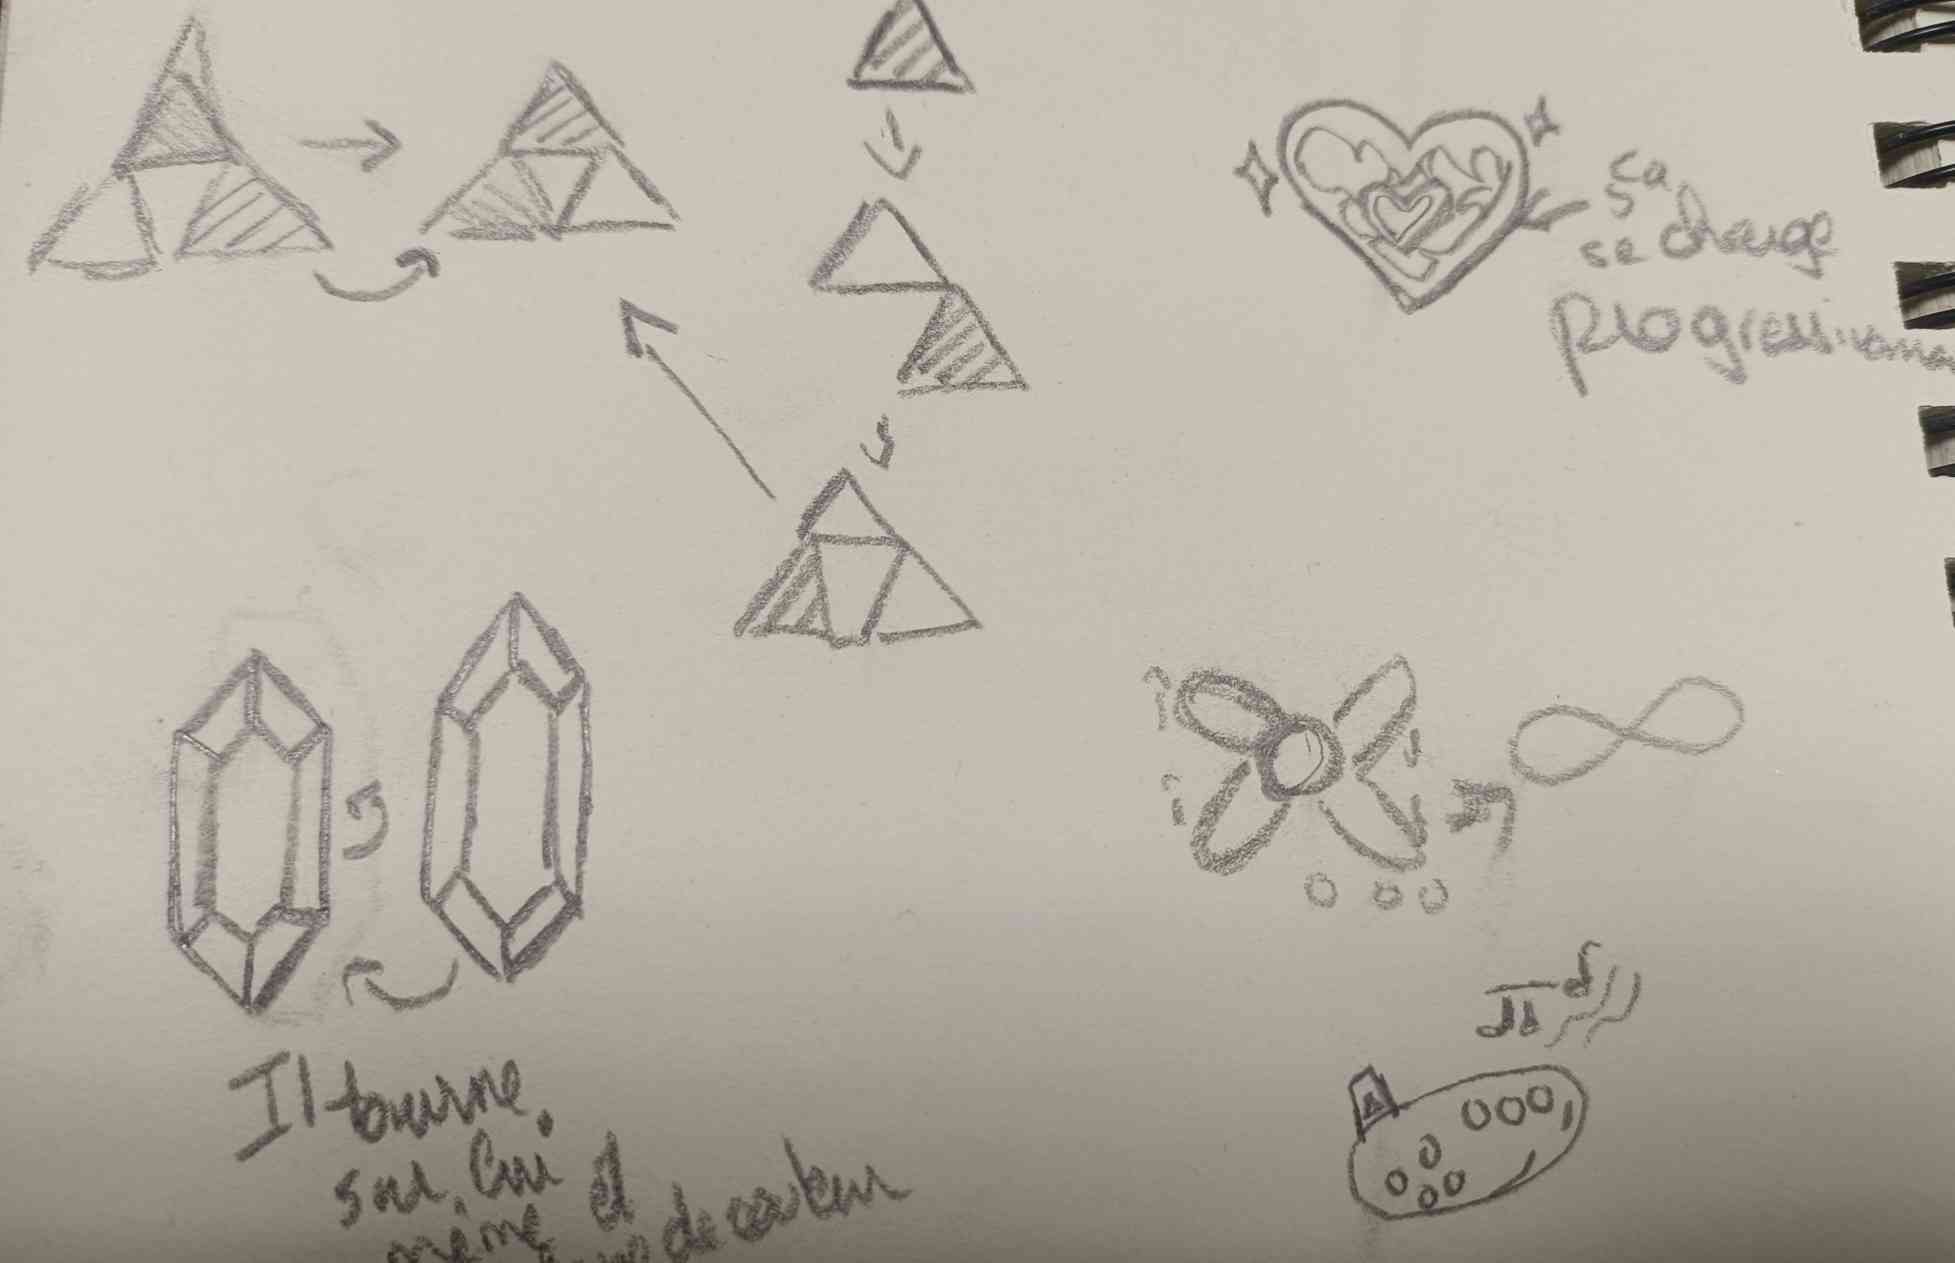 ça
se change
progressiveme
Il tourne
sur lui
même et
de couleur